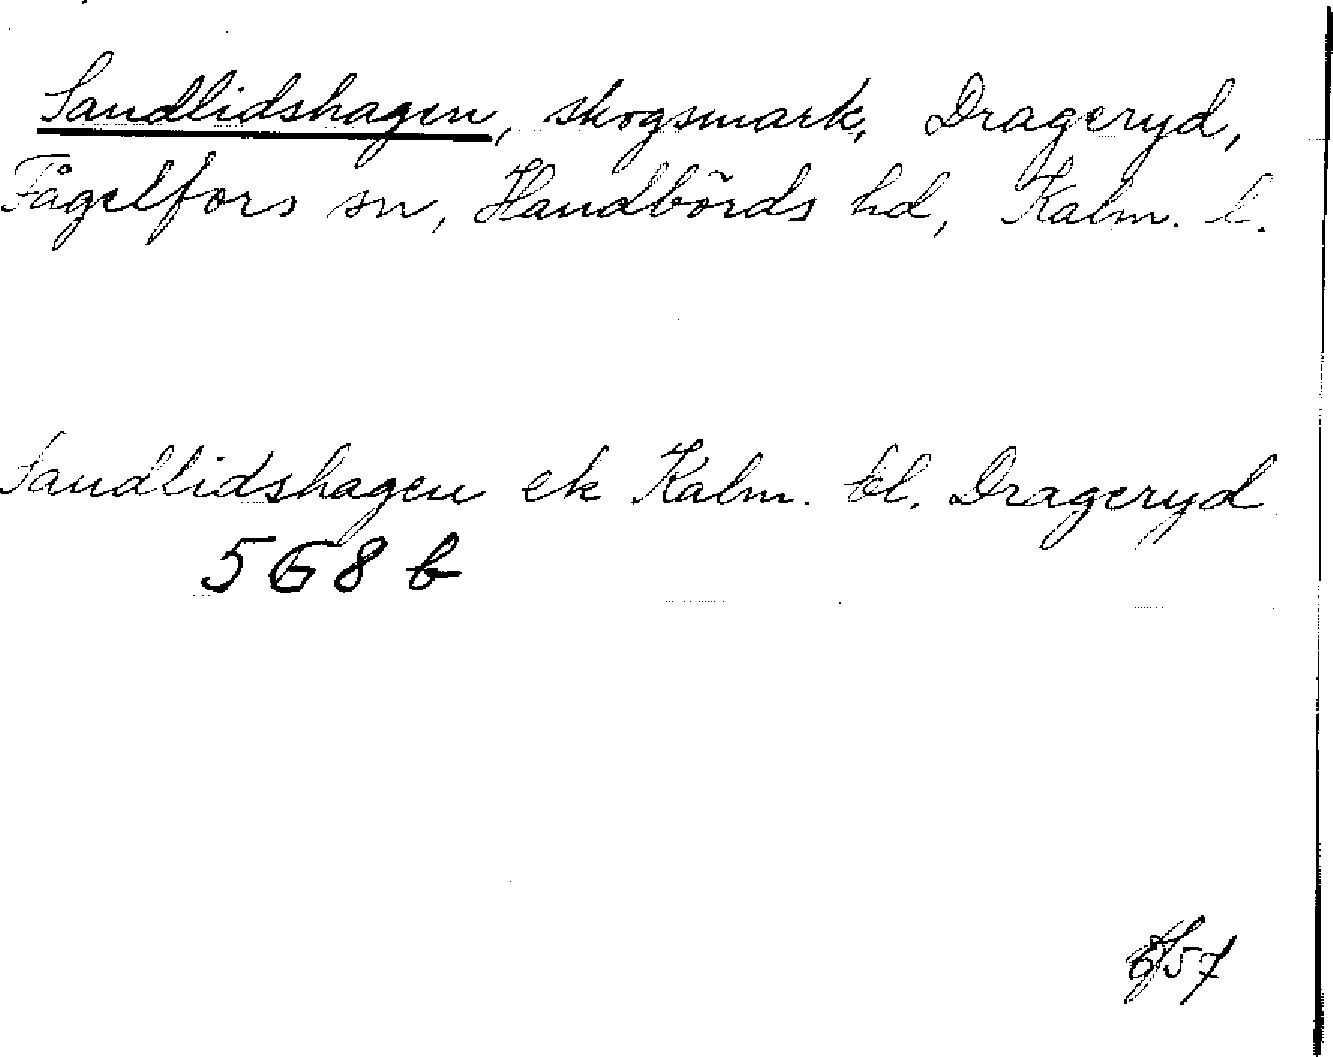 Sandlidshagen, skogsmark, Drageryd,
Fågelfors sn, Handbörds hd, Kalm. l.
Sandlidshagen ek Kalm. tl. Drageryd
568 b